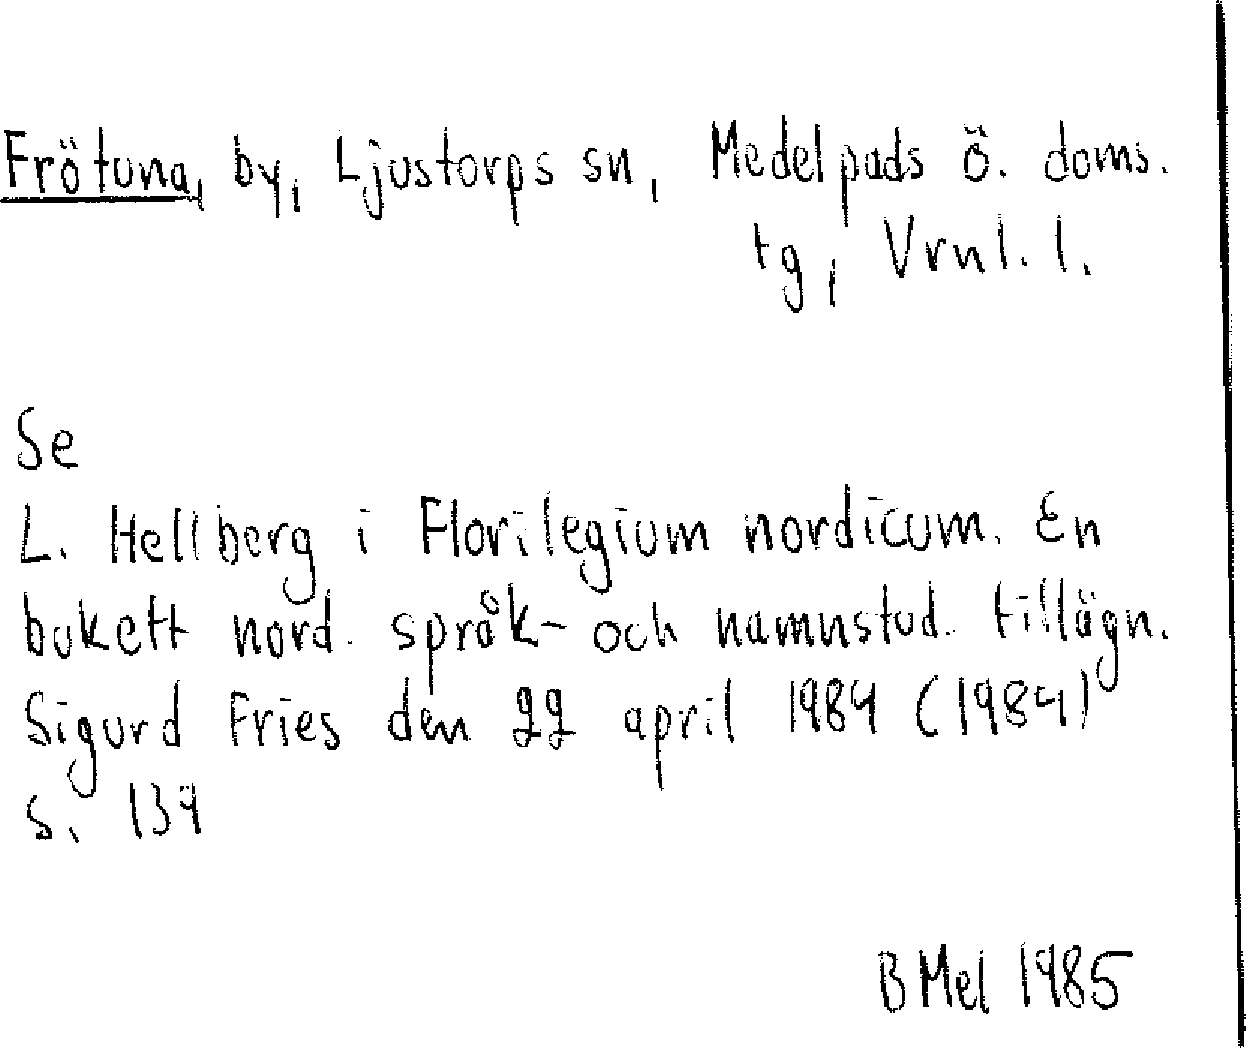 Frötuna, by, Ljustorps sn, Medelpads ö. doms.
tg, Vrnl. l.
Se
L. Hellberg i Florilegium nordicum. En
bukett nord. språk- och namnstud. tillägn.
Sigurd Fries den 22 april 1984 (1984)
s. 134
BMel 1985